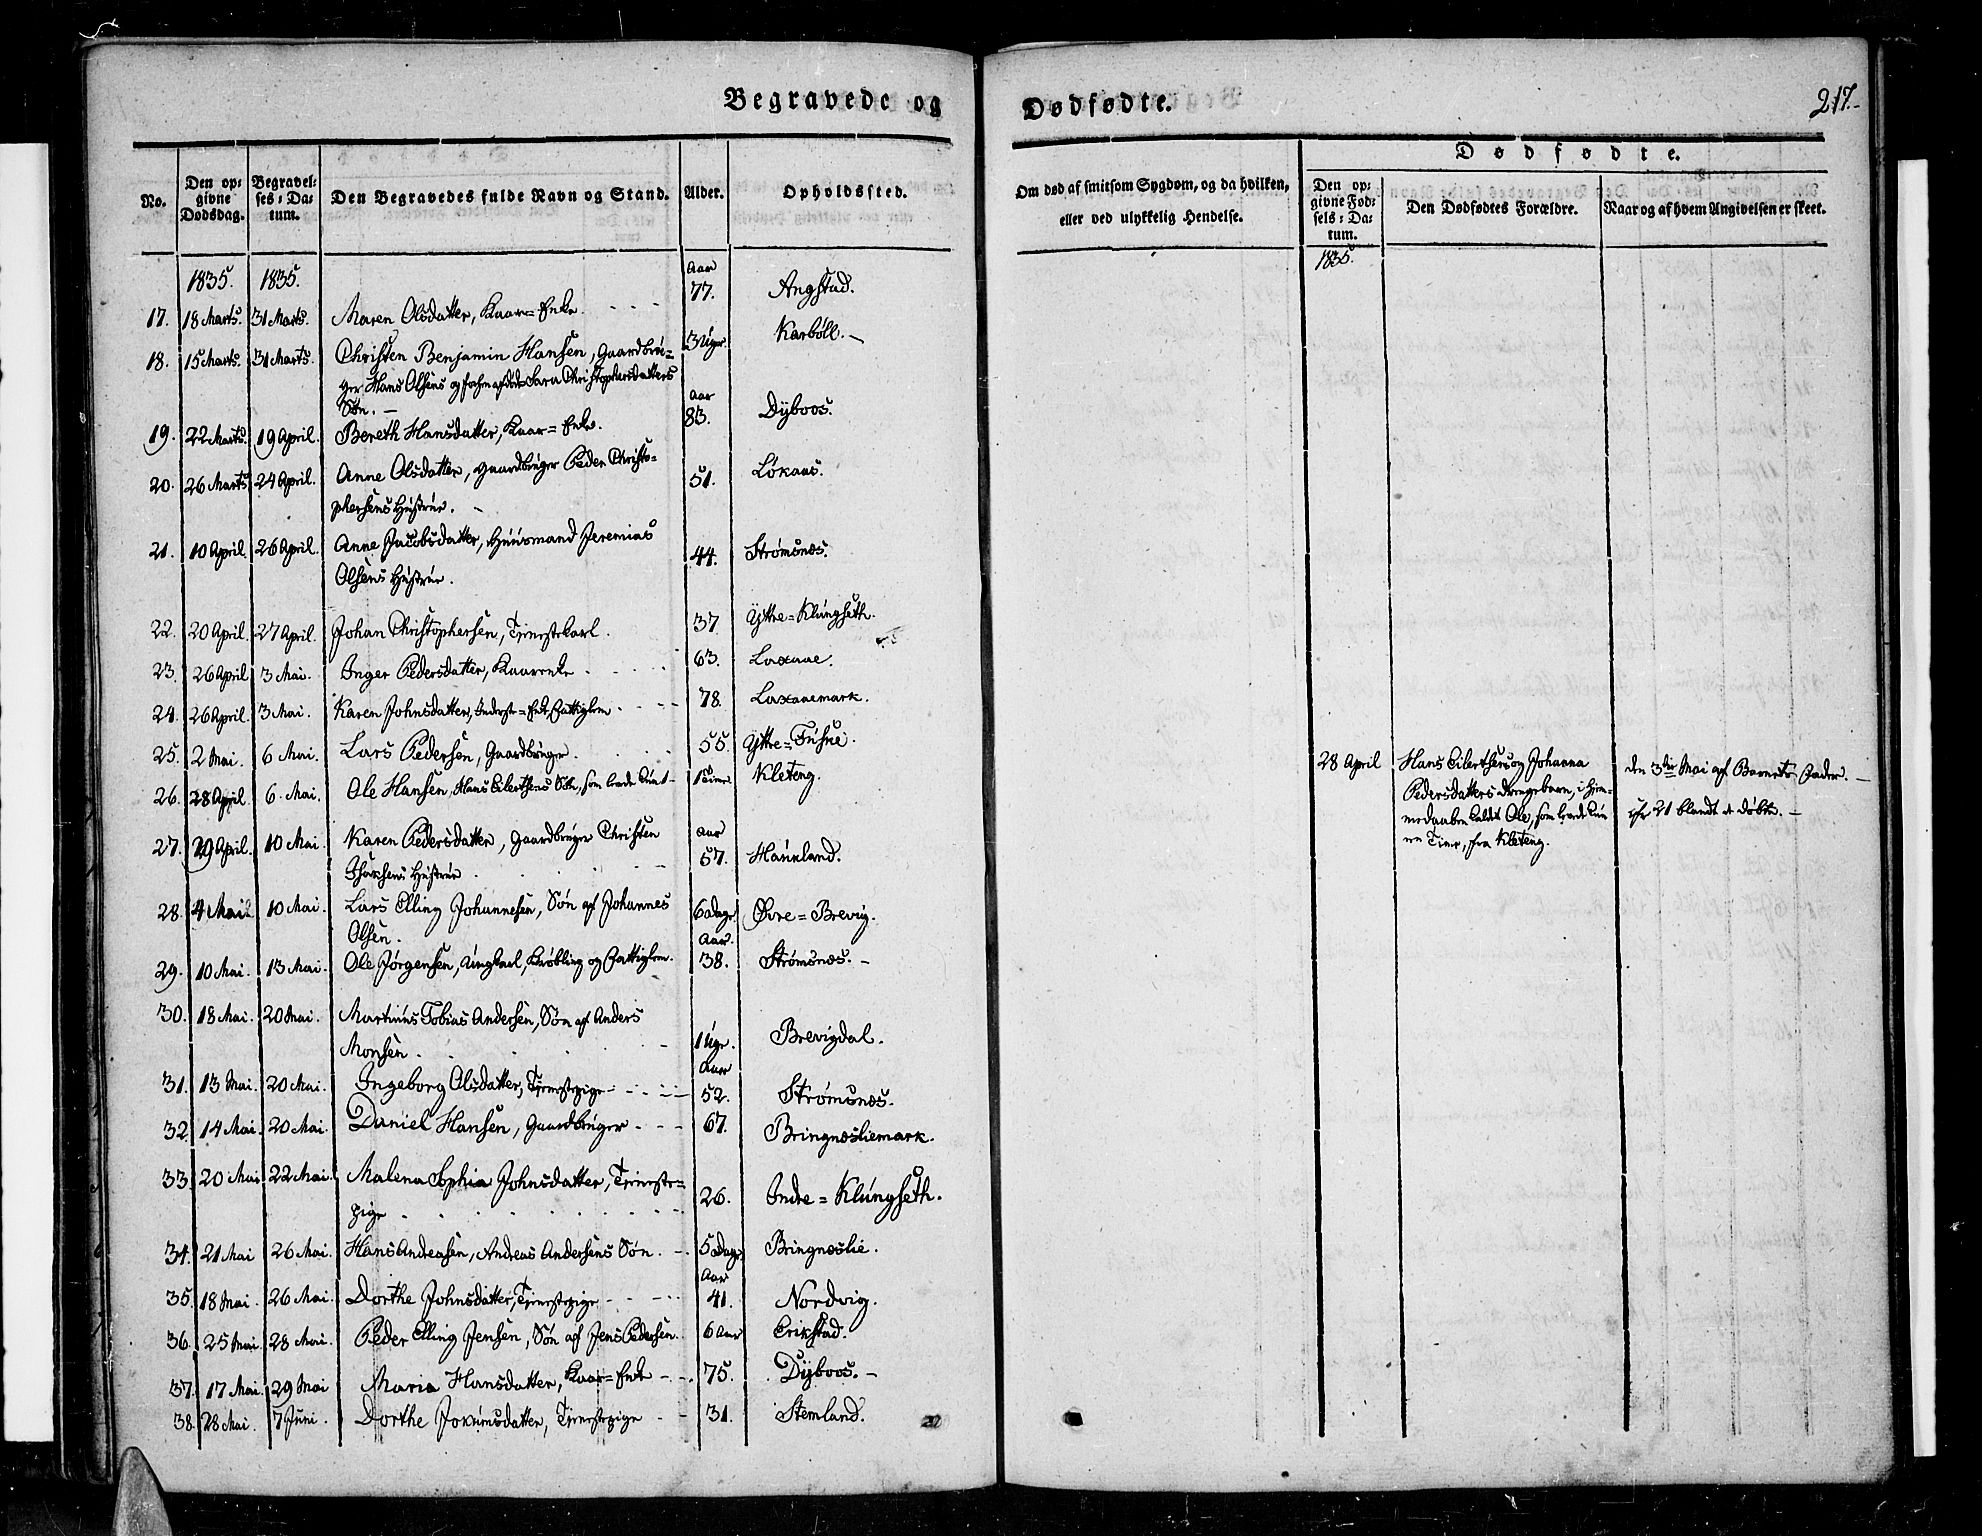 Begravede og
Dødfødte.
217.
No.
Den op-
givne
Dødsdag.
Begravel-
ses-Da-
tum.
Den Begravedes fulde Navn og Stand.
Alder.
Opholdssted.
Om død af smitsom Sygdom, og da hvilken,
eller ved ulykkelig Hendelse.
Dødfødte.
Den op-
givne Fød-
sels-Da-
tum.
Den Dødfødtes Forældre.
Naar og af hvem Angivelsen er skeet.
1835. 1835. Aar
17. 18 Marts. 31 Marts. Maren Olsdatter, Kaar=Enke. 77. Angstad.
18. 15 Marts. 31 Marts. Christen Benjamin Hansen, Gaardbrü-
ger Hans Olsens og Sara Christophersdatters
Søn. 3 Uger. Karbøll.
Aar
19. 22 Marts. 19 April. Bereth Hansdatter, Kaar=Enke. 83. Dÿbvos.
20. 26 Marts 24 April. Anne Olsdatter, Gaardbrüger Peder Christo-
phersens Hüstrüe. 51. Løkaas.
21. 10 April. 26 April. Anne Jacobsdatter, Hüüsmand Jeremias
Olsens Hüstrüe. 44. Strømsnæs.
22. 20 April. 27 April. Johan Christophersen, Tjenestekarl. 37. Ÿttre=Klüngseth.
23. 26 April 3 Mai. Inger Pedersdatter, Kaarenke. 63. Laxaae.
24. 26 April. 3 Mai. Karen Johnsdatter, Inderst=Enke, Fattiglem 78. Laxaaemark.
25. 2 Mai. 6 Mai. Lars Pedersen, Gaardbrüger. 55. Ÿttre=Füsne.
26. 28 April. 6. Mai. Ole Hansen, Hans Eilertsens Søn, som levede kün et 1 Time. Kleteng.
27. 29 April. 10 Mai. Karen Pedersdatter, Gaardbrüger Christen
Isaksens Hüstrüe Aar 57. Haünland.
28. 4 Mai 10 Mai. Lars Elling Johannesen, Søn af Johannes
Olsen. 6 Dage. Øvre=Brevig.
Aar.
29. 10 Mai. 13 Mai. Ole Jørgensen, Ungkarl, Krøbling og Fattiglem. 38. Strømsnæs.
30. 18 Mai. 20 Mai. Martinüs Tobias Andersen, Søn af Anders
Monsen. 1 Uge. Brevigdal.
Aar
31. 13 Mai. 20 Mai. Ingeborg Olsdatter, Tjenestepige 52. Strømsnæs.
32. 14 Mai. 20 Mai. Daniel Hansen, Gaardbrüger 67. Bringnæsliemark.
33. 20 Mai 22 Mai. Malena Sophia Johnsdatter, Tjeneste=
pige 26. Indre=Klüngseth.
34. 21 Mai 26 Mai. Hans Andreasen, Andreas Andersens Søn. 5 Dage. Bringnæslie.
Aar
35. 18 Mai. 26 Mai. Dorthe Johnsdatter, Tjenestepige 41. Nordvig.
36. 25 Mai 28 Mai. Peder Elling Jensen, Søn af Jens Pedersen. 6 Aar Erikstad.
37. 17 Mai. 29 Mai Maria Hansdatter, Kaar=Enke 75. Dÿbvos.
38. 28 Mai. 7 Juni. Dorthe Jokümsdatter, Tjenestepige 31. Stemland.
1835.
28 April
Hans Eilertsens og Johanna
Pedersdatters Drengebarn, i Hjem-
medaaben kaldt Ole, som levede kün
en Time, fra Kleteng.
den 3die Mai af Barnets Fader.
cfr 21 blandt de døbte.